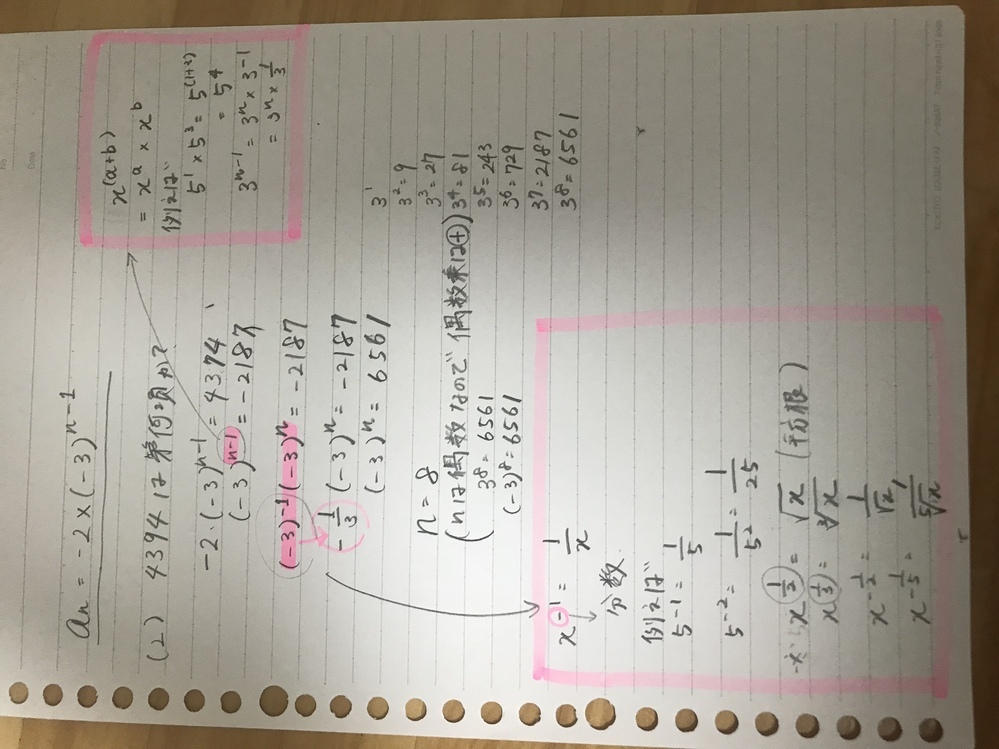 an = -2×(-3)^{n-1}
(2) 4394は第何項か?
-2・(-3)^{n-1} = 4374
(-3)^{n-1} = -2187
(-3)^{-1}(-3)^n = -2187
-\frac{1}{3}(-3)^n = -2187
(-3)^n = 6561
n = 8
(nは偶数なので 偶数乗は⊕)
3^8 = 6561
(-3)^8 = 6561
x^{(a+b)}
= x^a × x^b
例えば
5^1 × 5^3 = 5^{(1+3)}
= 5^4
3^{n-1} = 3^n × 3^{-1}
= 3^n × \frac{1}{3}
3^1
3^2 = 9
3^3 = 27
3^4 = 81
3^5 = 243
3^6 = 729
3^7 = 2187
3^8 = 6561
x^{-1} = \frac{1}{x}
分数
例えば
5^{-1} = \frac{1}{5}
5^{-2} = \frac{1}{5^2} = \frac{1}{25}
x^{\frac{1}{2}} = √x (平方根)
x^{\frac{1}{3}} = ∛x
x^{-\frac{1}{2}} = \frac{1}{√x}
x^{-\frac{1}{5}} = \frac{1}{\sqrt[5]{x}}